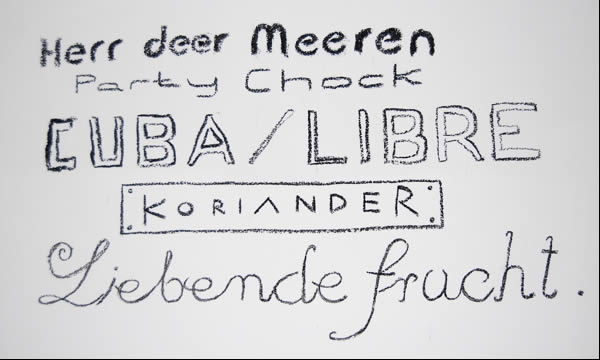 Herr deer Meeren
Party Chock
CUBA/LIBRE
KORIANDER
Liebende frucht.